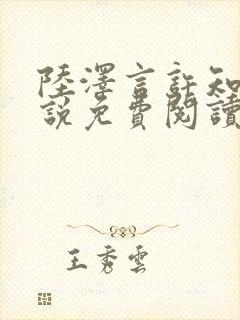 陸澤言許知
說免費閱讀
王秀雲